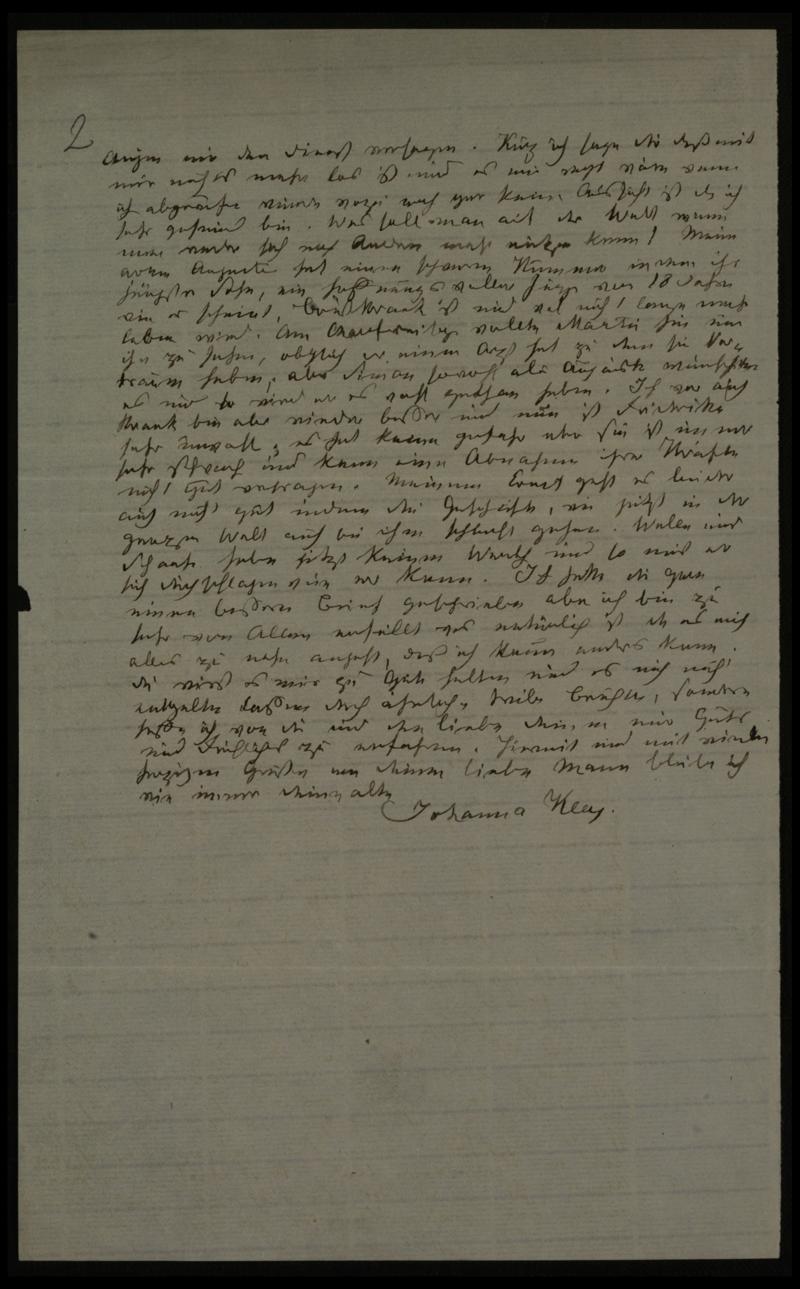 2
Augen mir den Dienst versagen. Kurz ich sage dir daß mit
mir nichts mehr los ist und es mir recht wäre wenn
ich abgerufen würde wozu noch gar keine Aussicht ist da ich
sehr gesund bin. Was soll man auf der Welt wenn
man weder sich noch Andern mehr nützen kann! Meine
arme Auguste hat einen schweren Kummer indem ihr
jüngster Sohn, ein hoffnungsvoller Junge von 18 Jahren
wie es scheint, brustkrank ist und wol nicht lange mehr
leben wird. Am wollte Martin hin um
ihn zu sehen, obgleich er einen Arzt hat zu dem sie Ver-
trauen haben, aber Simon sowohl als Auguste wünschten
es und so wird er es wohl gethan haben. Ich war auch
krank bin aber wieder besser und nun ist Friederike
sehr unwohl, es hat keine Gefahr aber sie ist immer
sehr schwach und kann eine Abnahme ihrer Kräfte
nicht gut vertragen. Meinem Ernst geht es leider
auch nicht gut indem die Geschäfte, wie jetzt in der
ganzen Welt auch bei ihm schlecht gehen. Wolle und
Schaafe haben jetzt keinen Werth und so muß er
sich durchschlagen wie er kann. Ich hätte dir gern
einen bessern Brief geschrieben aber ich bin zu
sehr von Allem erfüllt was natürlich ist da es mich
alles zu nahe angeht, daß ich kaum anders kann.
du wirst es mir zu Gute halten und es mich nicht
entgelten lassen durch ähnliche trübe Berichte, sondern
hoffe ich von dir und den lieben deinen nur Gutes
und Fröhliches zu erfahren. Hiermit und mit vielen
herzigen Grüßen an deinen lieben Mann bleibe ich
wie immer deine alte
Johanna Kley.